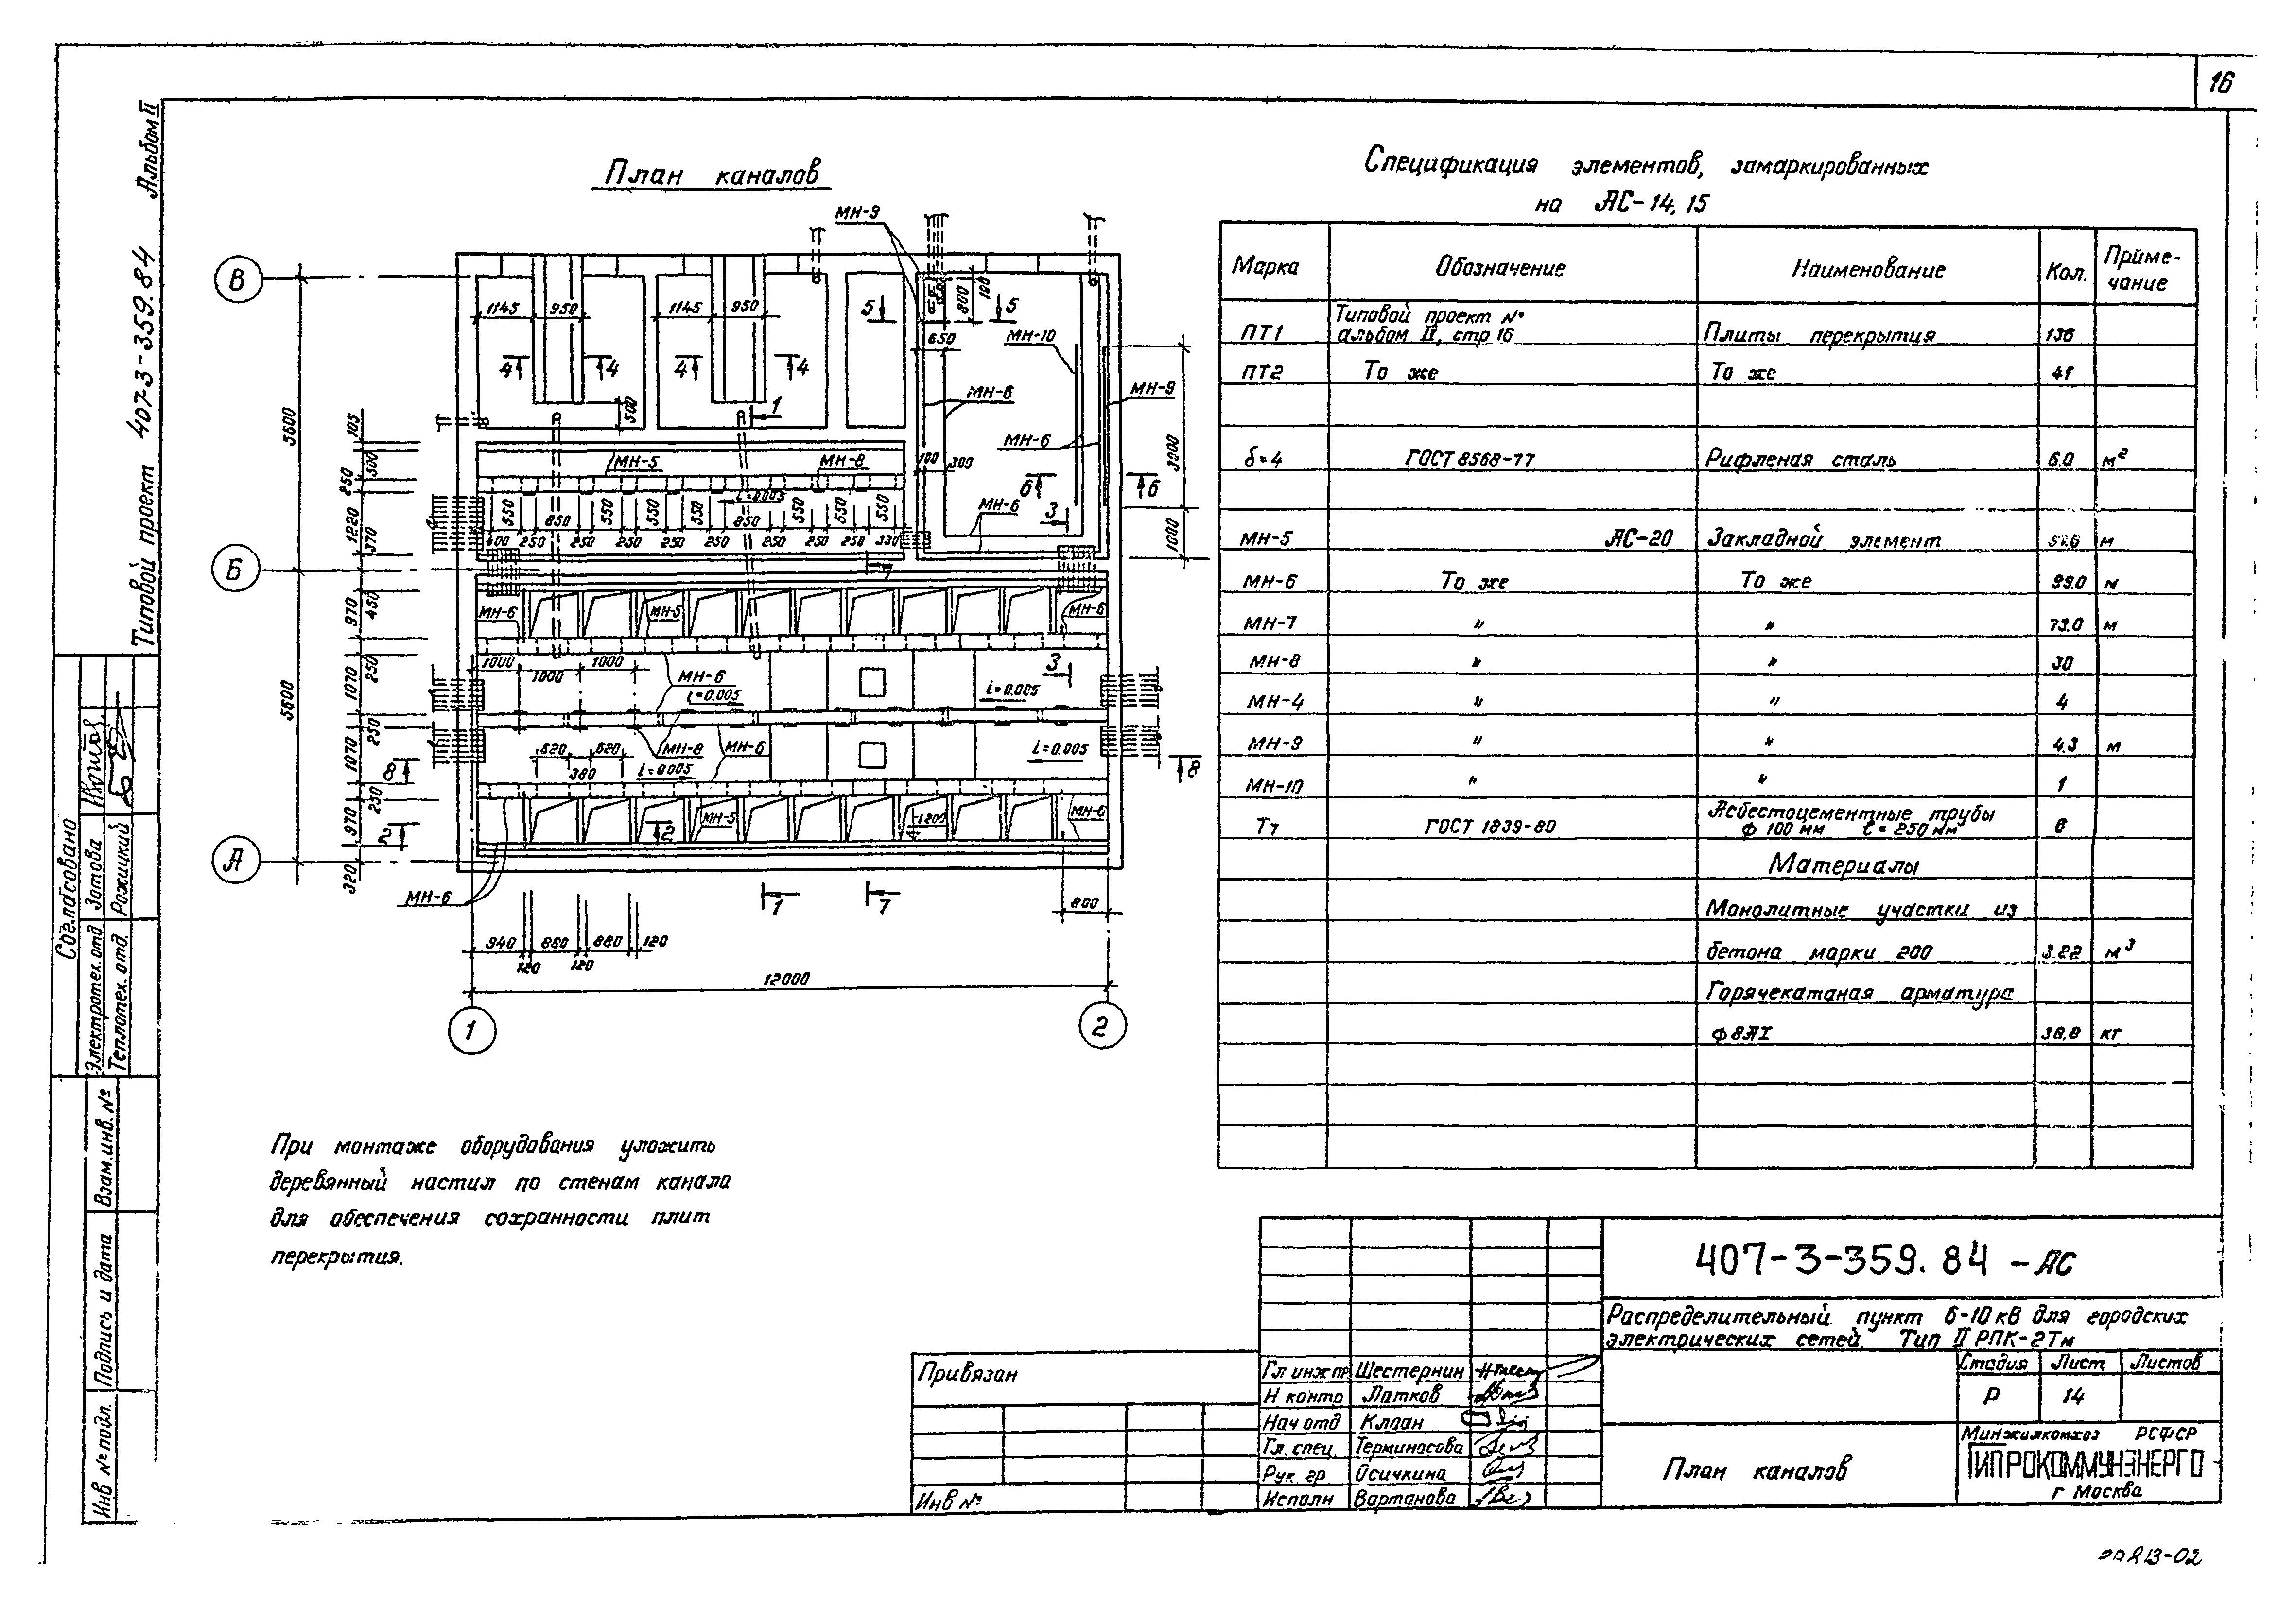 16
Типовой проект 407-3-359.84 Альбом II
План каналов
МН-9
В
Б
А
1145
950
1145
950
5
5
800
100
650
МН-10
МН-6
МН-9
МН-6
4
4
4
4
500
1
5600
5600
105
500
250
1220
370
МН-5
МН-8
i=0.005
100
300
3000
1000
6
6
МН-6
3
550
850
550
550
550
850
550
550
550
400
250
250
250
250
250
250
250
250
330
7
970
450
МН-6
МН-5
МН-6
1070
250
1000
1000
1000
МН-6
i=0.005
i=0.005
3
1070
250
620
620
МН-8
МН-6
380
i=0.005
i=0.005
8
8
970
250
МН-5
МН-6
-1.200
2
2
320
МН-6
1
7
800
940
880
880
120
120
120
12000
1
2
При монтаже оборудования уложить
деревянный настил по стенам канала
для обеспечения сохранности плит
перекрытия.
Спецификация элементов, замаркированных
на АС-14, 15
Марка Обозначение Наименование Кол. Приме-
чание
ПТ1 Типовой проект №
альбом IV, стр 16 Плиты перекрытия 136
ПТ2 То же То же 41
δ=4 ГОСТ 8568-77 Рифленая сталь 6.0 м²
МН-5 АС-20 Закладной элемент м
МН-6 То же То же 99.0 м
МН-7 " " 73.0 м
МН-8 " " 30
МН-4 " " 4
МН-9 " " 4.3 м
МН-10 " " 1
Т7 ГОСТ 1839-80 Асбестоцементные трубы
ф 100 мм ℓ=250 мм 6
Материалы
Монолитные участки из
бетона марки 200 3.22 м³
Горячекатаная арматура
ф8АI 38,8 кг
Согласовано
Электротех.отд Зотова
Теплотех. отд. Рожицкий
Взам.инв. №
Подпись и дата
Инв № подл.
Привязан
Инв №
Гл инж пр Шестернин
Н контр Латков
Нач отд Клаан
Гл. спец. Терминосова
Рук. гр Осичкина
Исполн Вартанова
407-3-359.84 -АС
Распределительный пункт 6-10 кВ для городских
электрических сетей. Тип II РПК-2Тм
Стадия Лист Листов
Р 14
План каналов
Минжилкомхоз РСФСР
ГИПРОКОММУНЭНЕРГО
г Москва